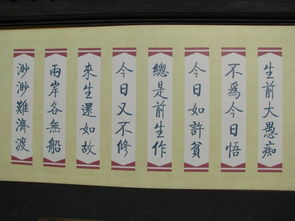 生前大愚痴
不為今日悟
今日如許貧
總是前生作
今日又不修
來生還如故
兩岸各無船
渺渺難濟渡